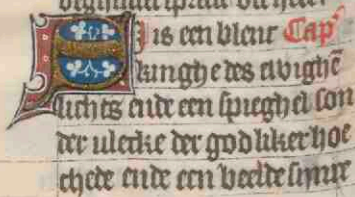 Si is een blenc Cap
kinghe des ewighē
lichts ende een spieghel son
der vlecke der godliker hoe
chede ende een beelde sijnre